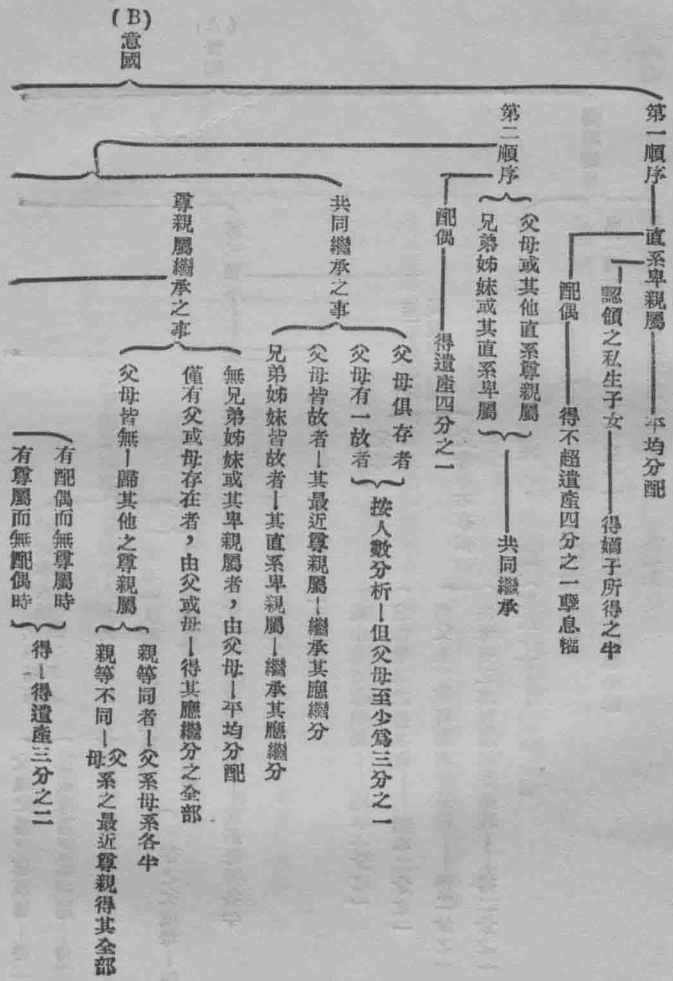 (B)意國
第一順序
直系卑親屬
平均分配
認領之私生子女
得嫡子所得之半
配偶
得不超遺產四分之一孳息權
第二順序
父母或其他直系尊親屬
兄弟姊妹或其直系卑屬
共同繼承
配偶
得遺產四分之一
共同繼承之事
父母俱存者
父母有一故者
按人數分析
但父母至少爲三分之一
父母皆故者
其最近尊親屬
繼承其應繼分
兄弟姊妹皆故者
其直系卑親屬
繼承其應繼分
尊親屬繼承之事
無兄弟姊妹或其卑親屬者,由父母
平均分配
僅有父或母存在者,由父或母
得其應繼分之全部
父母皆無
歸其他之尊親屬
親等同者
父系母系各半
親等不同
父母系之最近尊親得其全部
有配偶而無尊屬時
有尊屬而無配偶時
得
得遺產三分之二